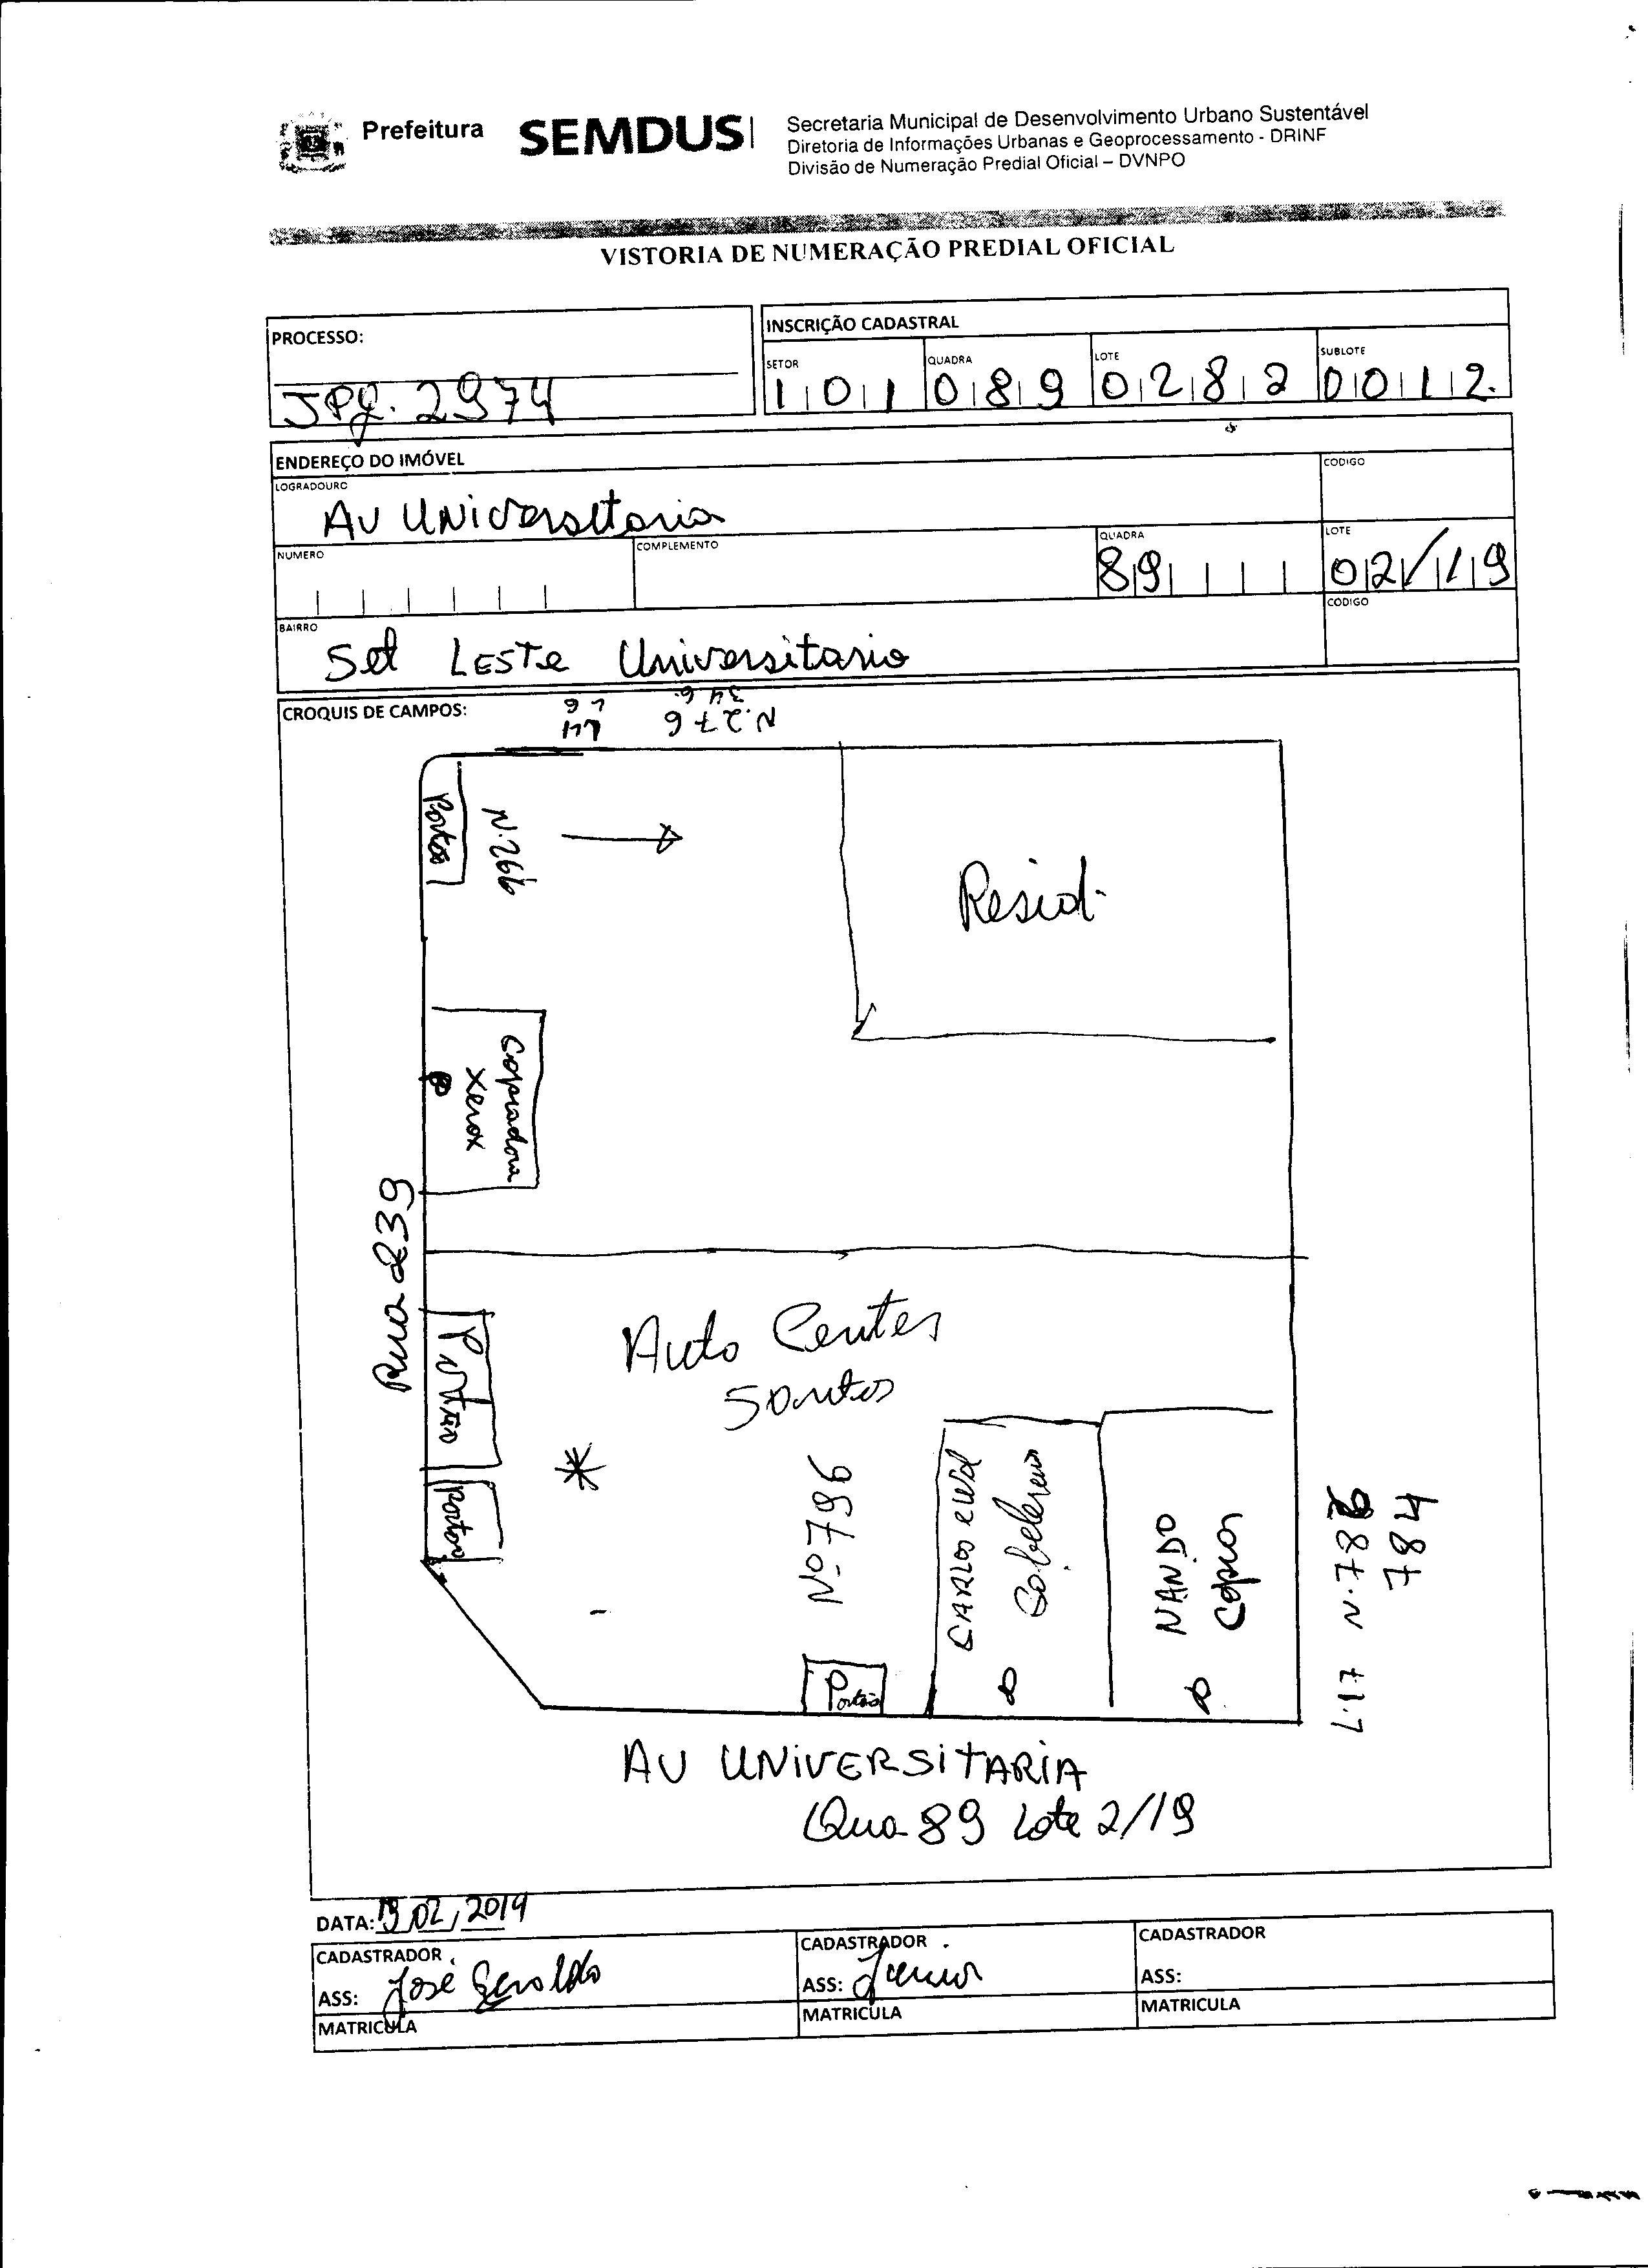 Prefeitura SEMDUS
Secretaria Municipal de Desenvolvimento Urbano Sustentável
Diretoria de Informações Urbanas e Geoprocessamento - DRINF
Divisão de Numeração Predial Oficial – DVNPO
VISTORIA DE NUMERAÇÃO PREDIAL OFICIAL
PROCESSO:
JPg. 2974
INSCRIÇÃO CADASTRAL
SETOR QUADRA LOTE SUBLOTE
101 089 0282 0012
ENDEREÇO DO IMÓVEL
LOGRADOURO CODIGO
Av Universitaria
NUMERO COMPLEMENTO QUADRA LOTE
89 02/19
BAIRRO CODIGO
Set Leste Universitario
CROQUIS DE CAMPOS:
N.276
Portão
N.266
Resid.
Copiadora
Xerox
Rua 239
Auto Center
Santos
Portão
Portão
Nº 796
Portão
CARLOS
NANDO
Copias
L.17 N.786
784
AV UNIVERSITARIA
Qua 89 Lote 2/19
DATA: 19/02/2014
CADASTRADOR CADASTRADOR CADASTRADOR
ASS: José Geraldo ASS: Junior ASS:
MATRICULA MATRICULA MATRICULA